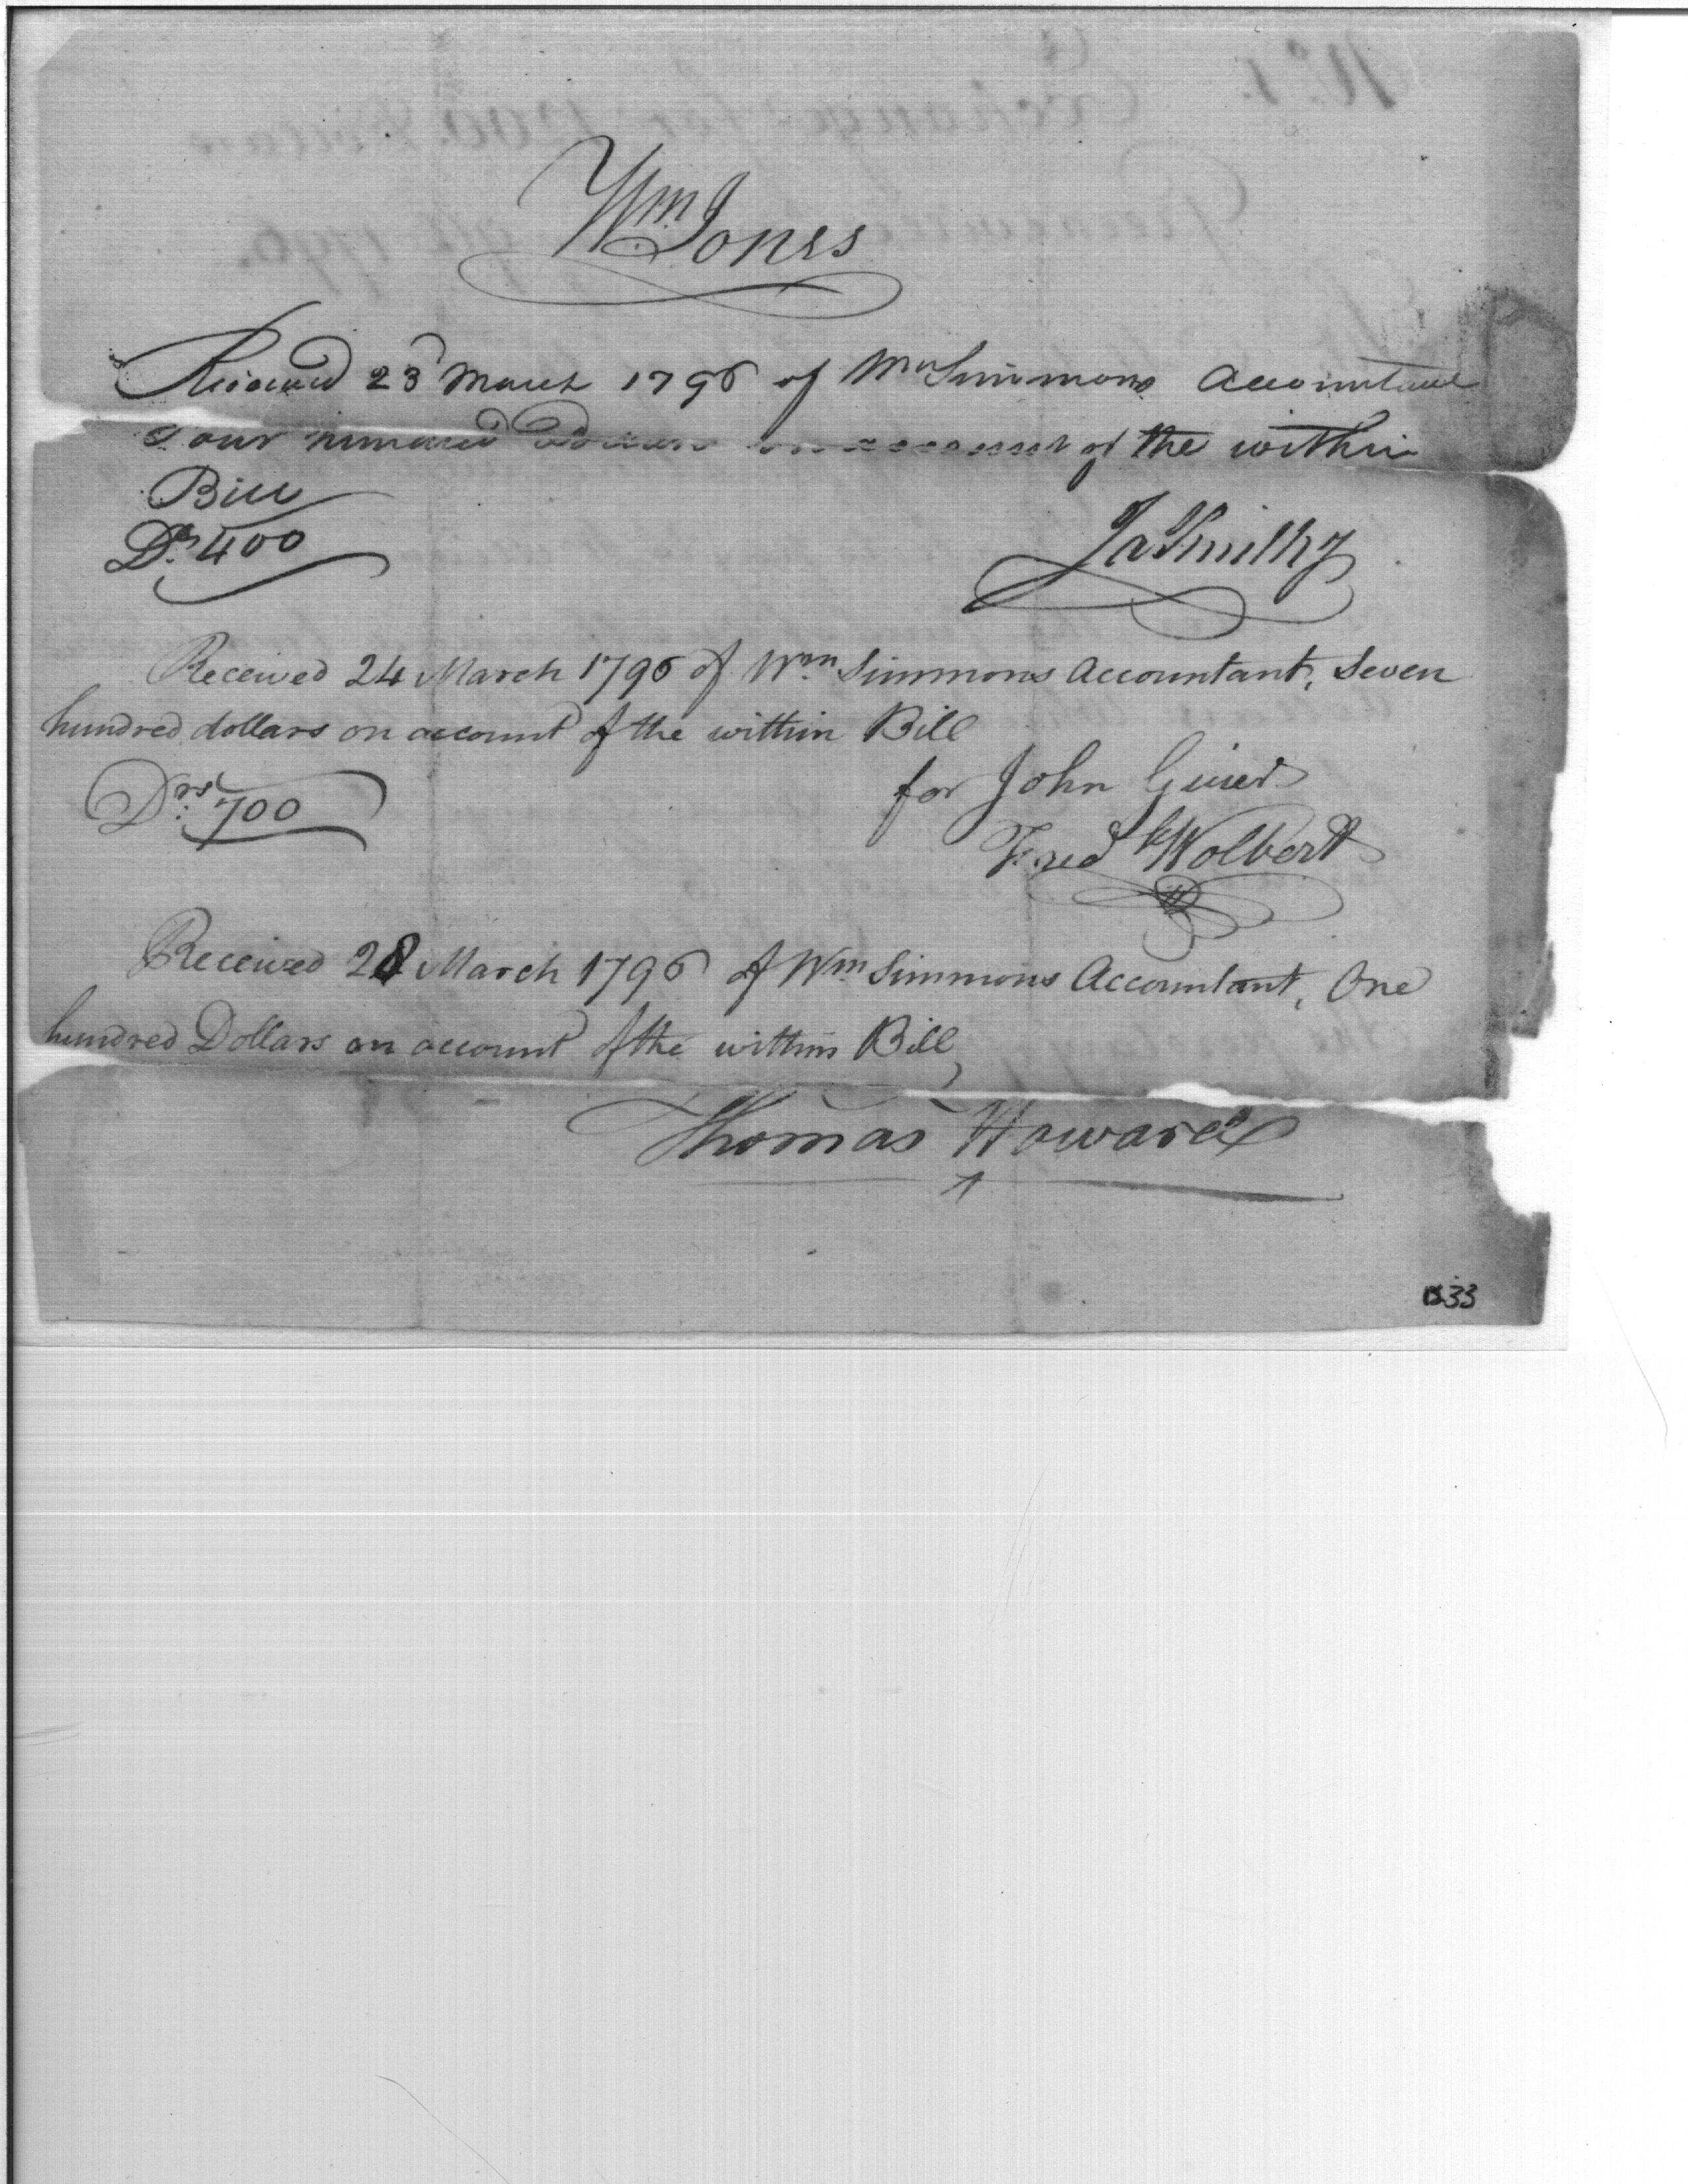 Wm Jones
Received 23d March 1796 of Wm Simmons Accountant
Four hundred Dollars on account of the within
Bill
Ds. 400
Ja Smilhy
Received 24 March 1796 of Wm. Simmons Accountant, Seven
hundred dollars on account of the within Bill
Drs. 700
for John Guier
Fredk Wolbert
Received 28 March 1796 of Wm Simmons Accountant, One
hundred Dollars on account of the within Bill
Thomas Howard
1533